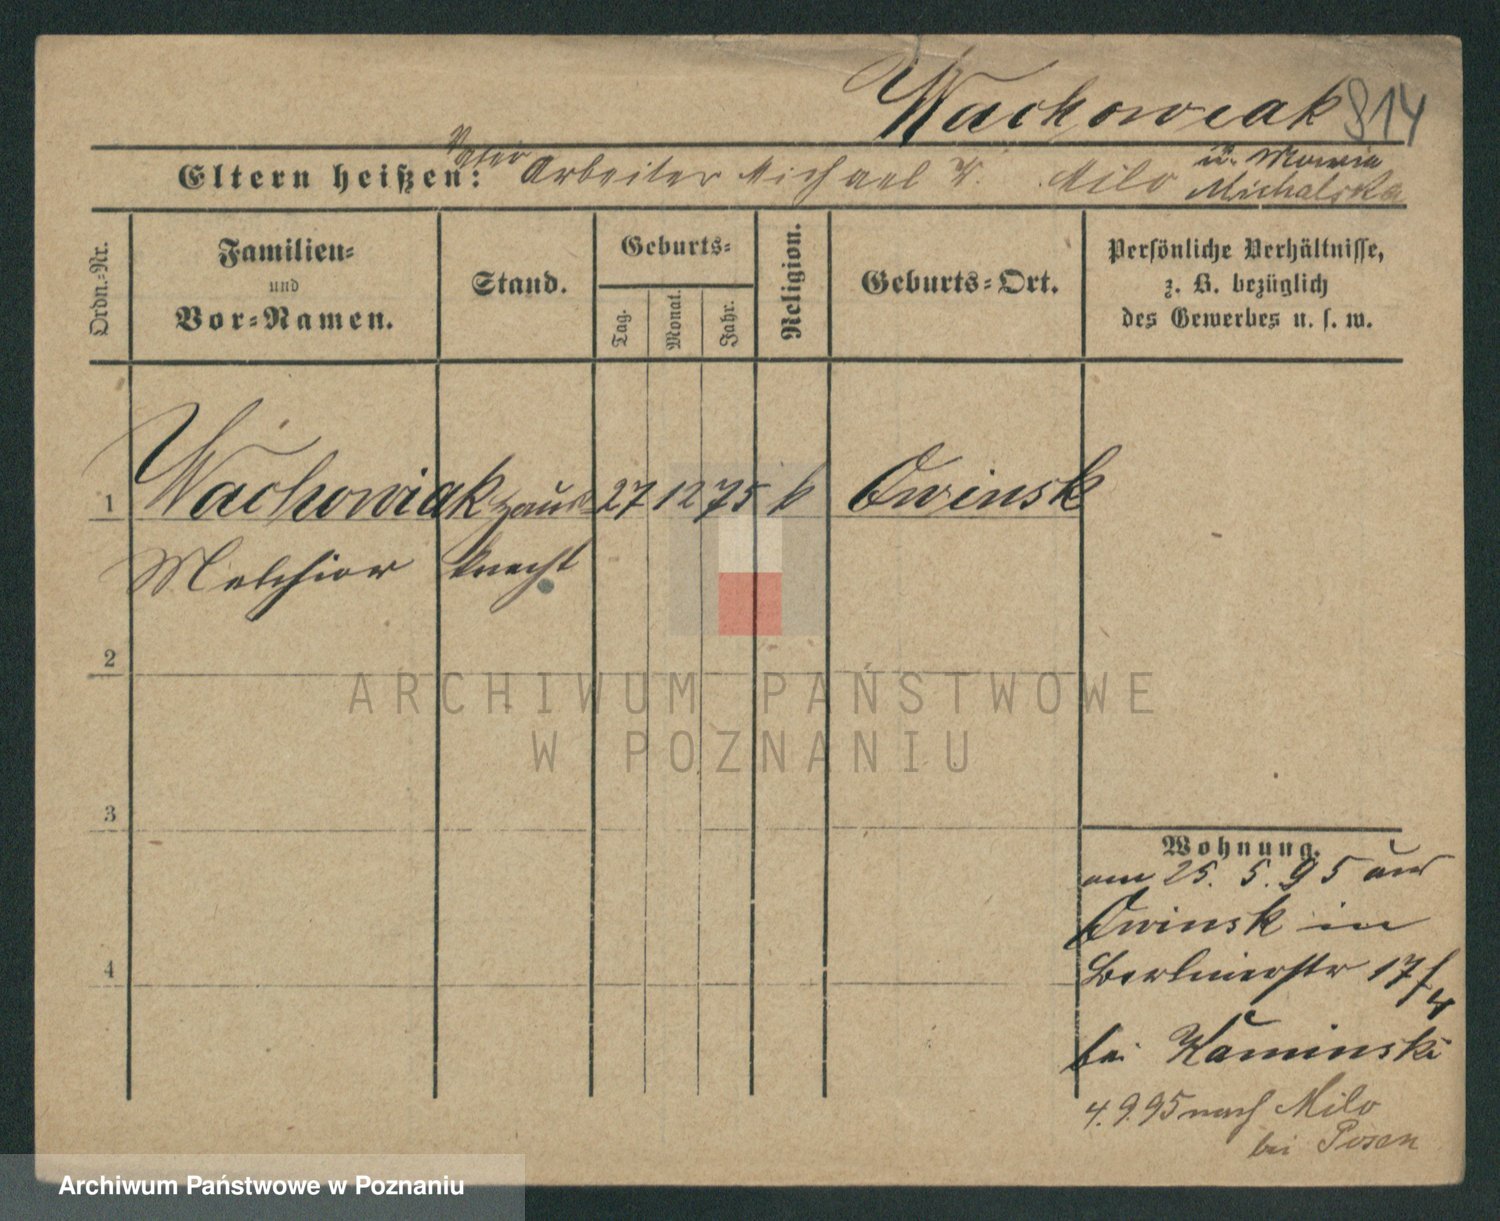 Wachowiak 814
Eltern heißen: Vater Arbeiter Michael W. Milo u. Maria
Michalska
Ordn.=Nr.
Familien=
und
Vor=Namen.
Stand.
Geburts=
Tag.
Monat.
Jahr.
Religion.
Geburts=Ort.
Persönliche Verhältnisse,
z. B. bezüglich
des Gewerbes u. s. w.
1 Wachowiak Haus= 27 12 75 k Owinsk
Melchior knecht
2
3
4
Wohnung.
am 25. 5. 95 aus
Owinsk in
Berlinerstr 17/4
bei Kaminski
4.9.95 nach Milo
bei Posen
ARCHIWUM PAŃSTWOWE
W POZNANIU
Archiwum Państwowe w Poznaniu